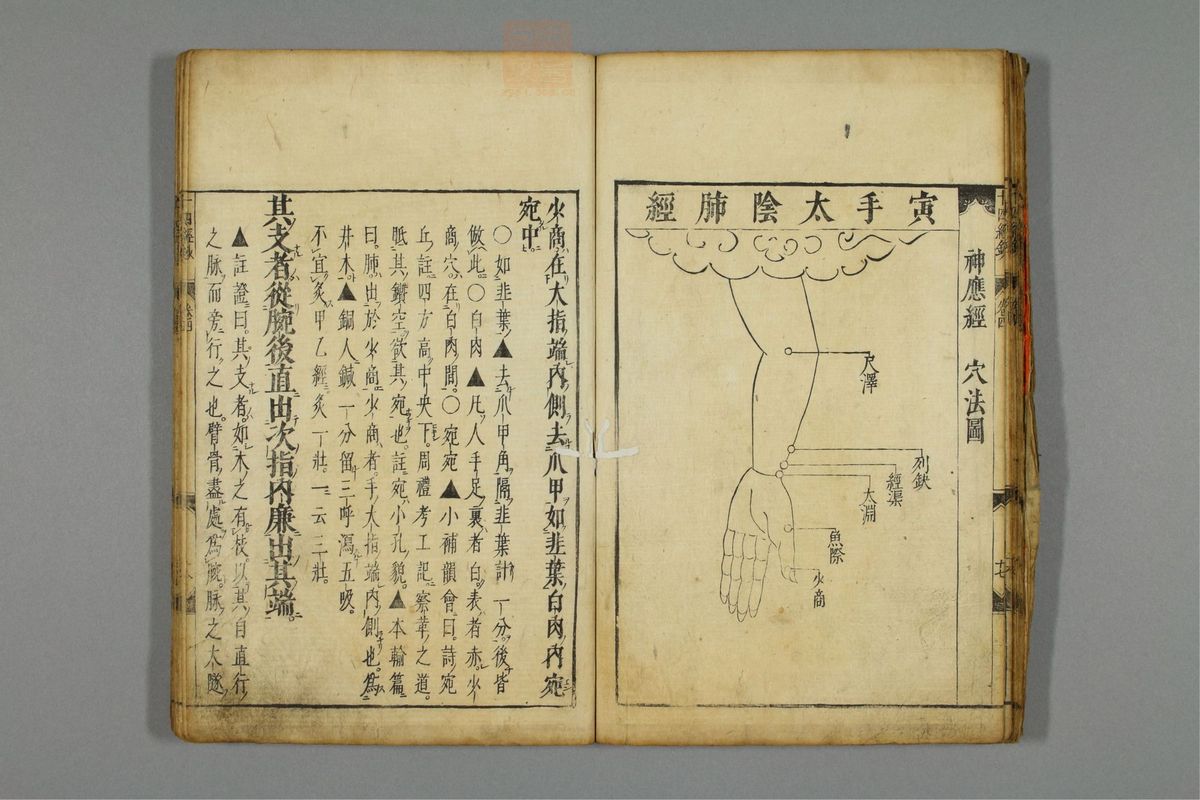 神應經 穴法圖
寅手太陰肺經
尺澤
列缺
經渠
太淵
魚際
少商
少商在大指端內側去爪甲如韭葉白肉內宛
宛中
〇如韭葉▲去爪甲角隔韭葉計一分後皆
倣此〇白肉▲凡人手足裏者白表者赤少
商穴在白肉間〇宛宛▲小補韻會曰詩宛
丘註四方高中央下周禮考工記察革之道
眂其鑽空欲其宛也註宛小孔貌▲本輸篇
曰肺出於少商少商者手大指端內側也為
井木▲銅人鍼一分留三呼瀉五吸
不宜灸甲乙經灸一壯一云三壯
其支者從腕後直出次指內廉出其端
▲註證曰其支者如木之有枝以其自直行
之脉而旁行之也臂骨盡處為腕脉之大隧